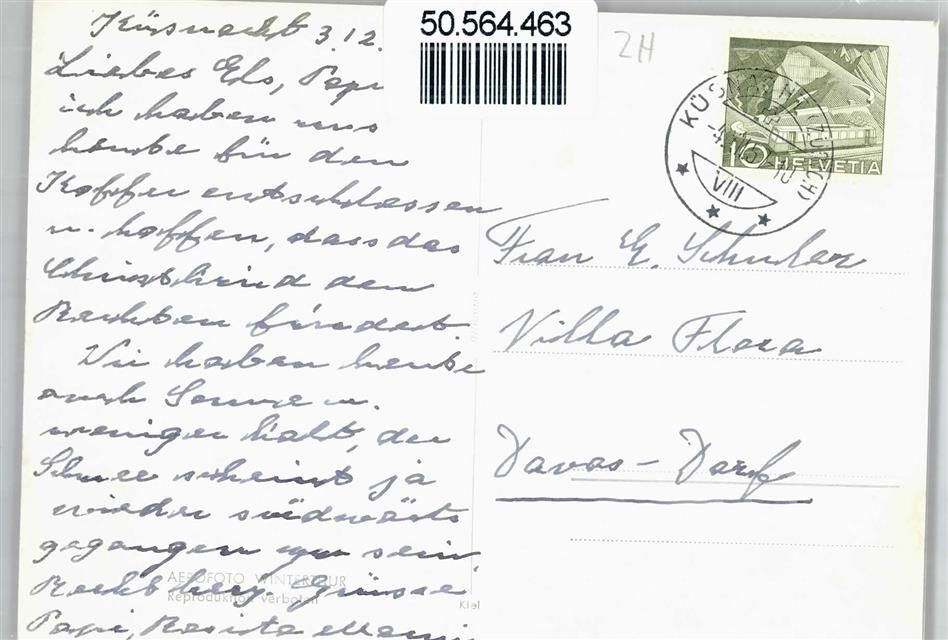 50.564.463
ZH
HELVETIA
10
KÜSNACHT (ZÜRICH)
VIII
Küsnacht 3.12.
Liebes Els, Papi
u. ich haben uns
heute für den
Koffer entschlossen
u. hoffen, dass das
Christkind den
Rechten findet.
Wir haben heute
auch Sonne u.
weniger kalt, der
Schnee scheint ja
wieder südwärts
gegangen zu sein
Recht herz. Grüsse
Papi, Mami
Frau E. Schuler
Villa Flora
Davos-Dorf
AEROFOTO WINTERTHUR
Reproduktion verboten
Kiel